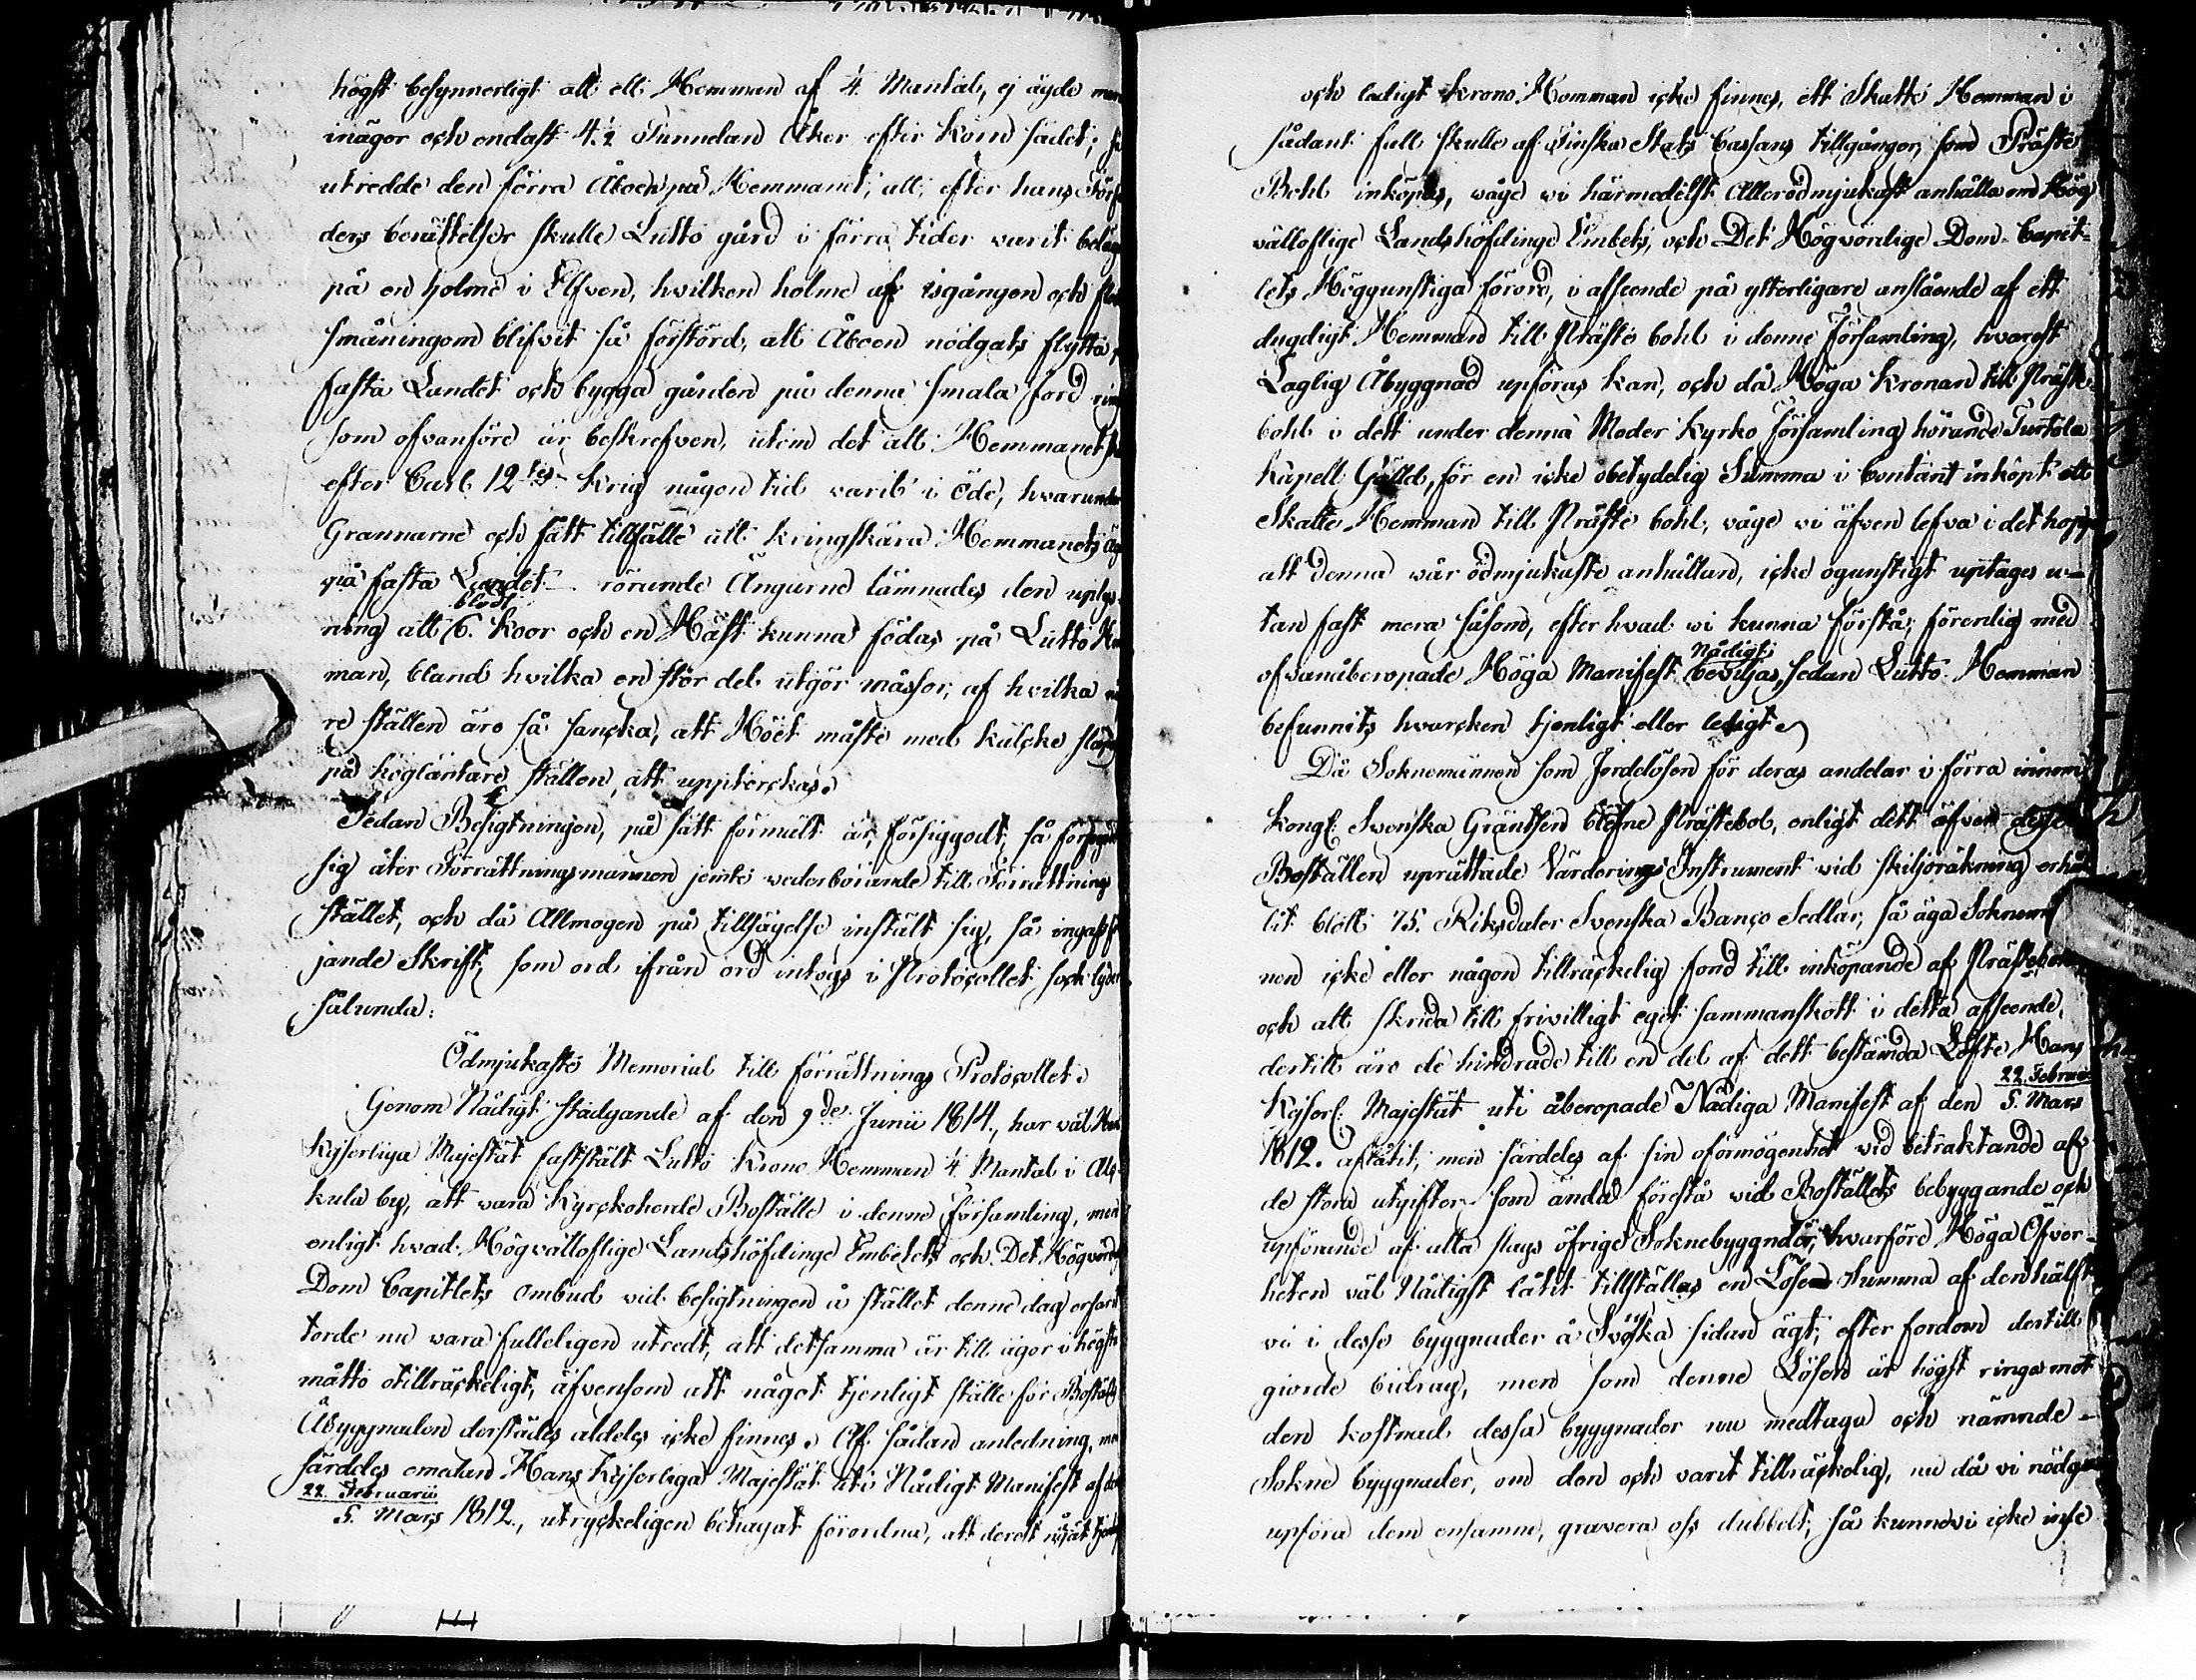 högst besynnerligt att ett Hemman af ¼ Mantal, ej ägde mera
inägor och endast 4.½ Tunneland Åker efter Korn sädet; så
utredde den förra Åboen på Hemmanet, att, efter hans Förf
ders berättelser skulle Lutto gård i förra tider varit beläg
på en holme i Elfven, hvilken holme af isgången och flod
småningom blifvit så förstörd, att Åboen nödgats flytta
fasta Landet och bygga gården på denna smala jord
som ofvanföre är beskrefven, utom det att Hemmanet
efter Carl 12tes Krig någon tid varit i öde, hvarunder
Grannarne och fått tillfälle att kringskära Hemmanets äg
på fasta Landet – rörande Ängarne lämnades den uplys-
ning att blott 6. Koor och en Häst kunna födas på Lutto Hem
man, bland hvilka en stor del utgör måssor, af hvilka
re ställen äro så sancka, att Höet måste med kälcke släpas
på högländtare ställen, att upptorckas.
Sedan Besigtningen, på sätt förmält är, försiggådt, så förfogade
sig åter Förrättningsmännen jemte wederbörande till Förrättnings
stället, och då Allmogen på tillsägelse instält sig, så ingafs
jande Skrift, som ord ifrån ord intogs i Protocollet och lyder
sålunda:
Ödmjukaste Memorial till förrättnings Protocollet.
Genom Nådigt stadgande af den 9de Junii 1814., har väl Hans
Kejserliga Majestät faststält Lutto Krono Hemman ¼ Mantal i Al-
kula by, att vara Kyrckoherde Boställe i denne Församling, men
enligt hvad Högvälloflige Landshöfdinge Embetets och Det Högvördige
Dom Capitlets ombud vid besigtningen å stället denne dag erfarit
torde nu vara fulleligen utredt, att detsamma är till ägor i högsta
måtto otillräckeligt, äfvensom att något tjenligt ställe för Boställs
Åbyggnaden derstädes aldeles icke finnes. Af sådan anledning, men
särdeles emedan Hans Kejserliga Majestät uti Nådigt Manifest af den
22. Februarii
5. Mars 1812., utryckeligen behagat förordna, att derest

och ledigt Krono Hemman icke finnes, ett Skatte Hemman i
sådant fall skulle af Finska Stats Cassans tillgångor, som Präste
Bohl inköpas, våge vi härmedelst Allerödmjukast anhålla om Hög
välloflige Landshöfdinge Embets, och Det Högvördige Dom-Capit-
lets Höggunstiga förord, i afseende på ytterligare anslående af ett
dugdigt Hemman till Präste bohl i denne Församling, hvarest
Laglig Åbyggnad upföras kan, och då Höga Kronan till Präste
bohl i dett under denna Moder Kyrko Församling hörande Turtola
Kapell Gälld, för en icke obetydelig Summa i Contant inköpt ett
Skatte Hemman till Präste bohl, våge vi äfven lefva i det hopp
att denna wår ödmjukaste anhållan, icke ogunstigt uptages u-
tan fast mera såsom, efter hvad vi kunna förstå, förenlig med
ofvanåberopade Höga Manifest Nådigt beviljas, sedan Lutto Hemman
befunnits hvarcken tjenligt eller ledigt.
Då Soknemännen som Jordelösen för deras andelar i förra innom
Kongl: Svenska Gräntsen blefne Prästebol, enligt dett äfven
Boställen uprättade Värderings Instrument vid skiljoräkning erhål-
lit blott 75. Riksdaler Svenska Banco Sedlar, så äga Soknemän
nen icke eller någon tillräckelig fond till inköpande af Prästebohl
och att skrida till frivilligt eget sammanskott i detta afseende,
dertill äro de hindrade till en del af dett bestämda Löfte Hans
Kejserl: Majestät uti åberopade Nådiga Manifest af den 22. Februarii
5. Mars
1812. aflåtit, men särdeles af sin oförmögenhet vid betraktande af
de stora utgifter som ändå förestå vid Boställets bebyggande och
upförande af alla slags öfrige Soknebyggnader, hvarföre Höga Öfver-
heten väl Nådigst låtit tillställas en Lösen Summa af den hälft
vi i desse byggnader å Svenska sidan ägt, efter fordom dertill
giorde bidrag, men som denne Lösen är högst ringa mot
den kostnad dessa byggnader nu medtaga och nämnde
Sokne byggnader, om den och varit tillräckelig, nu då vi nödgas
upföra dem ensamne, gravera oss dubbelt, så kunne vi icke inse